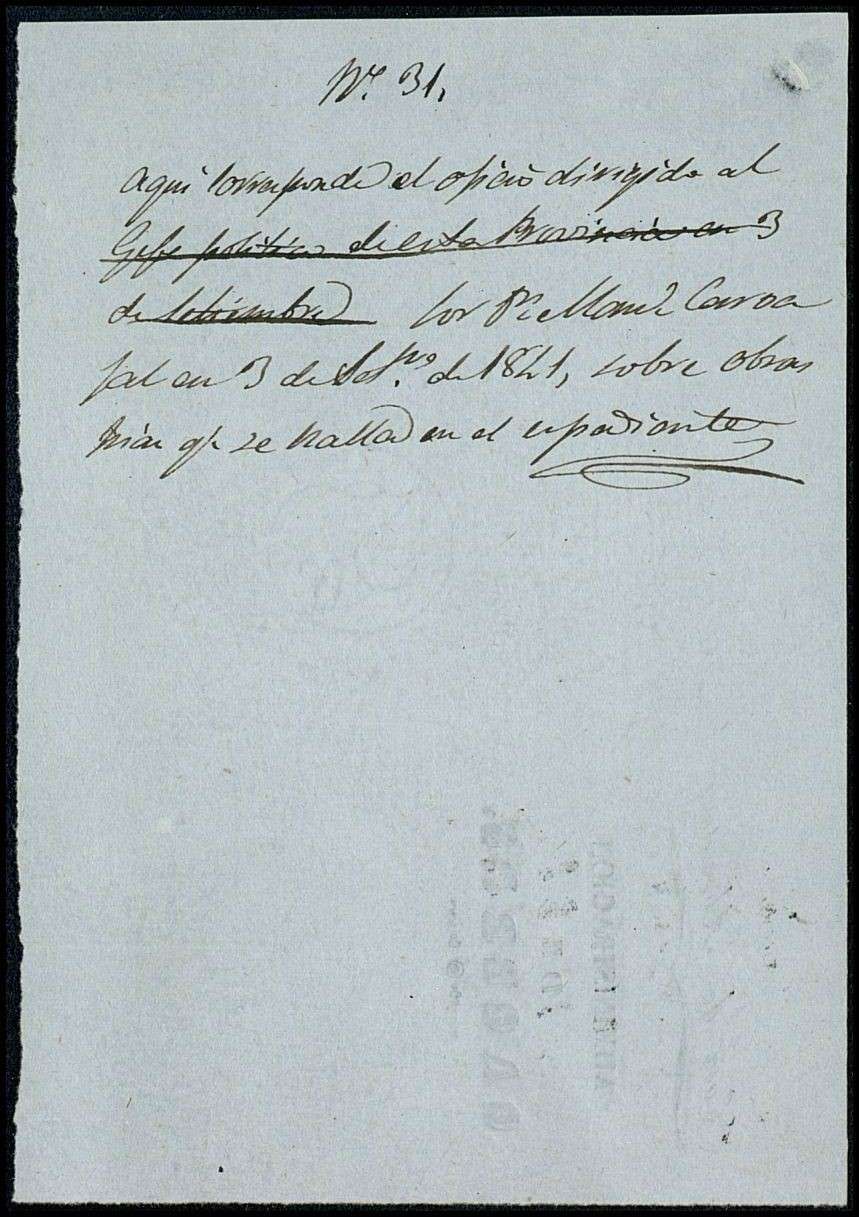 Nº. 31,
Aqui corresponde el oficio dirigido al
Gefe politico de esta Provincia en 3
de Setiembre por Dⁿ Manˡ Carva
jal en 3 de Setᵇʳᵉ de 1841, sobre obras
qᵉ se halla en el espediente